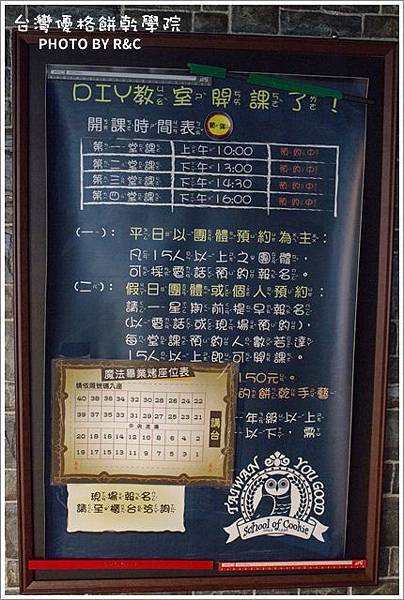 台灣優格餅乾學院
PHOTO BY R&C
DIY教室開課了！
開課時間表
第一堂課 上午10:00 預約中!
第二堂課 下午13:00 預約中!
第三堂課 下午14:30 預約中!
第四堂課 下午16:00 預約中!
(一)：平日以團體預約為主：
凡15人以上之團體，
可採電話預約報名。
(二)：假日團體或個人預約：
請一星期前提早報名
(以電話或現場預約)，
每堂課預約人數若達
15人以上即可開課。
150元。
的餅乾手藝
年級以上
以下，需
魔法畢業烤座位表
請依照號碼入座
40 38 36 34 32 30 28 26 24 22
39 37 35 33 31 29 27 25 23 21
中央走道
20 18 16 14 12 10 8 6 4 2
19 17 15 13 11 9 7 5 3 1
講台
現場報名
請至櫃台洽詢
TAIWAN YOU GOOD
School of Cookie